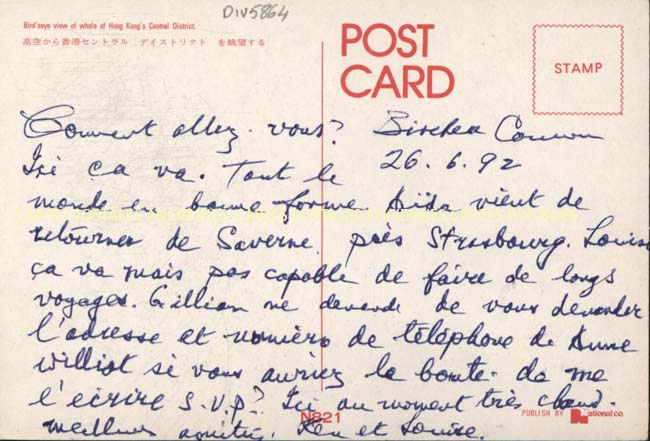 DIV5864
Bird'seye view of whole of Hong Kong's Central District.
高空から香港セントラル デイストリクト を眺望する
POST
CARD
STAMP
Comment allez-vous? Bircher Common
Ici ça va. Tout le 26.6.92
monde en bonne forme. Aïda vient de
retourner de Saverne près Strasbourg. Louise
ça va mais pas capable de faire de longs
voyages. Gillian me demande de vous demander
l'adresse et numéro de téléphone de Anne
Williot si vous auriez la bonté de me
l'écrire S.V.P? Ici au moment très chaud.
meilleurs amitiés. Ken et Louise.
N821
PUBLISH BY National co.